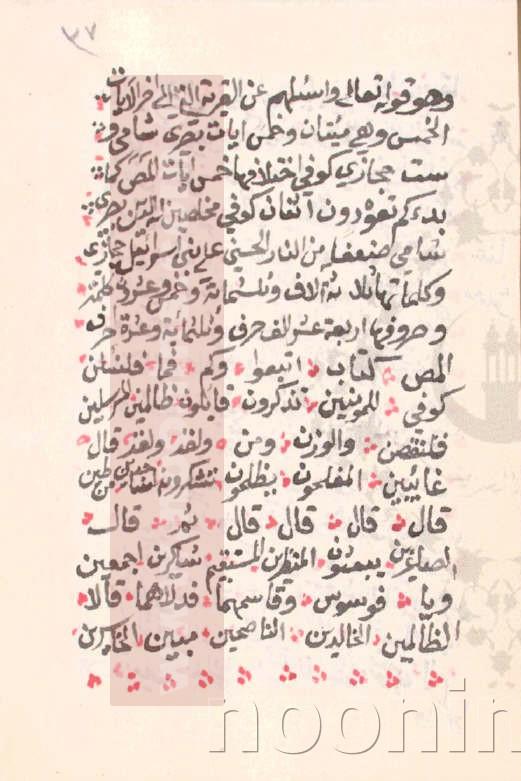 ٣٧
وهو قوله تعالى واسئلهم عن القرية التي الى اخر الايات
الخمس وهي مئتان وخمس ايات بصرى شامى و
ست حجازي كوفي اختلافها خمس ايات المص كما
بدءكم تعودون اثنان كوفي مخلصين له الدين بصرى
شامي ضعفا من النار الحسنى على بنى اسرائيل حجازى
وكلماتها ثلاثة الاف وثلثمائة وخمس وعشرون كلمة
وحروفها اربعة عشر الف حرف وثلثمائة وعشرة احرف
المص كتاب اتبعوا وكم فما فلنسئلن
كوفي المؤمنين تذكرون قائلون ظالمين المرسلين
فلنقصن والوزن ومن ولقد ولقد قال
غائبين المفلحون يظلمون تشكرون الساجدين طين
قال قال قال قال ثم قال
الصاغرين يبعثون المنظرين المستقيم شاكرين اجمعين
ويا فوسوس وقاسمهما فدلاهما قالا
الظالمين الخالدين الناصحين مبين الخاسرين
noonin